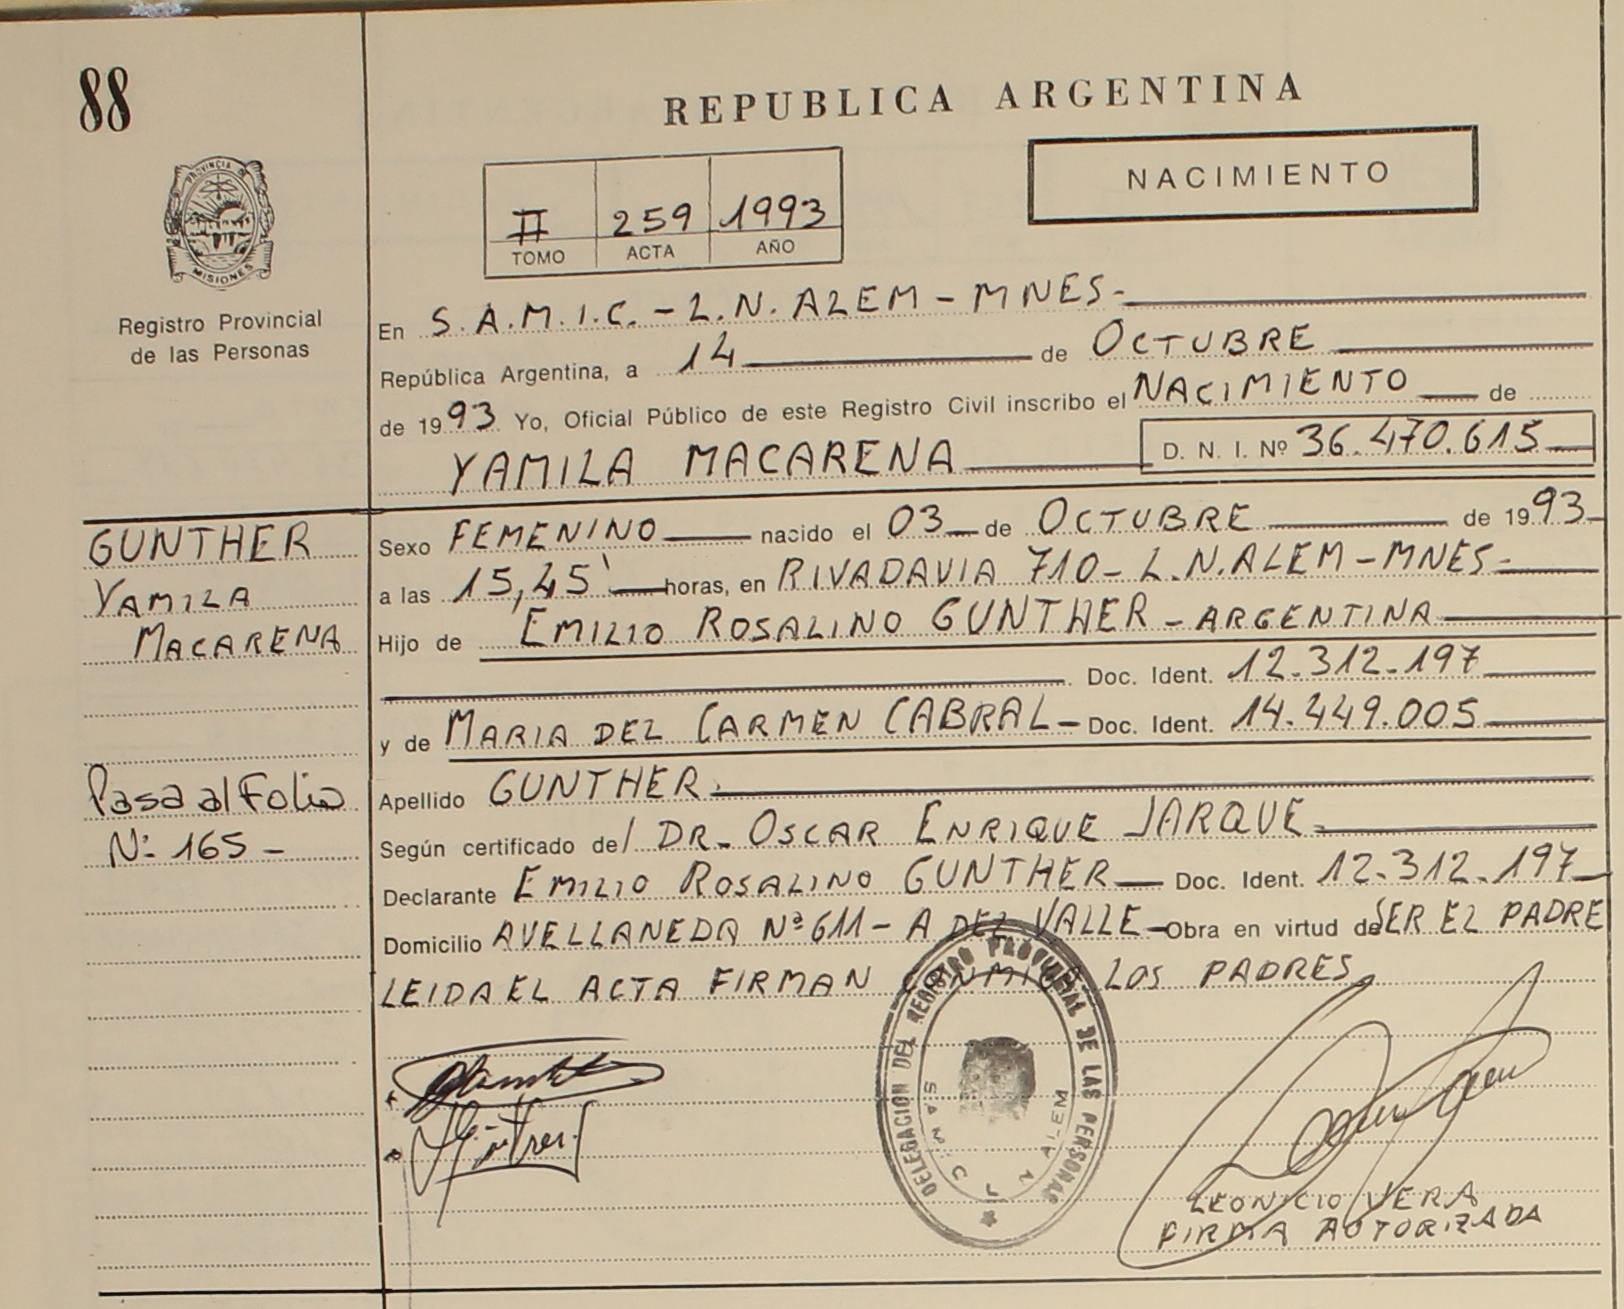 88
REPUBLICA ARGENTINA
NACIMIENTO
II 259 1993
TOMO ACTA AÑO
PROVINCIA D
MISIONES
Registro Provincial
de las Personas
En S.A.M.I.C. - L.N. ALEM - MNES-
República Argentina, a 14 de OCTUBRE
de 1993 Yo, Oficial Público de este Registro Civil inscribo el NACIMIENTO de
YAMILA MACARENA D. N. I. Nº 36.470.615
GUNTHER
YAMILA
MACARENA
Pasa al Folio
Nº 165 -
Sexo FEMENINO nacido el 03 de OCTUBRE de 1993
a las 15,45' horas, en RIVADAVIA 710 - L.N. ALEM - MNES-
Hijo de EMILIO ROSALINO GUNTHER - ARGENTINA
Doc. Ident. 12.312.197
y de MARIA DEL CARMEN CABRAL - Doc. Ident. 14.449.005
Apellido GUNTHER.
Según certificado del DR. OSCAR ENRIQUE JARQUE.
Declarante EMILIO ROSALINO GUNTHER Doc. Ident. 12.312.197
Domicilio AVELLANEDA Nº 611 - A DEL VALLE - Obra en virtud de SER EL PADRE
LEIDA EL ACTA FIRMAN CONMIGO LOS PADRES
DELEGACION DEL REGISTRO PROVINCIAL DE LAS PERSONAS
SAMIC L N ALEM
LEONICIO VERA
FIRMA AUTORIZADA